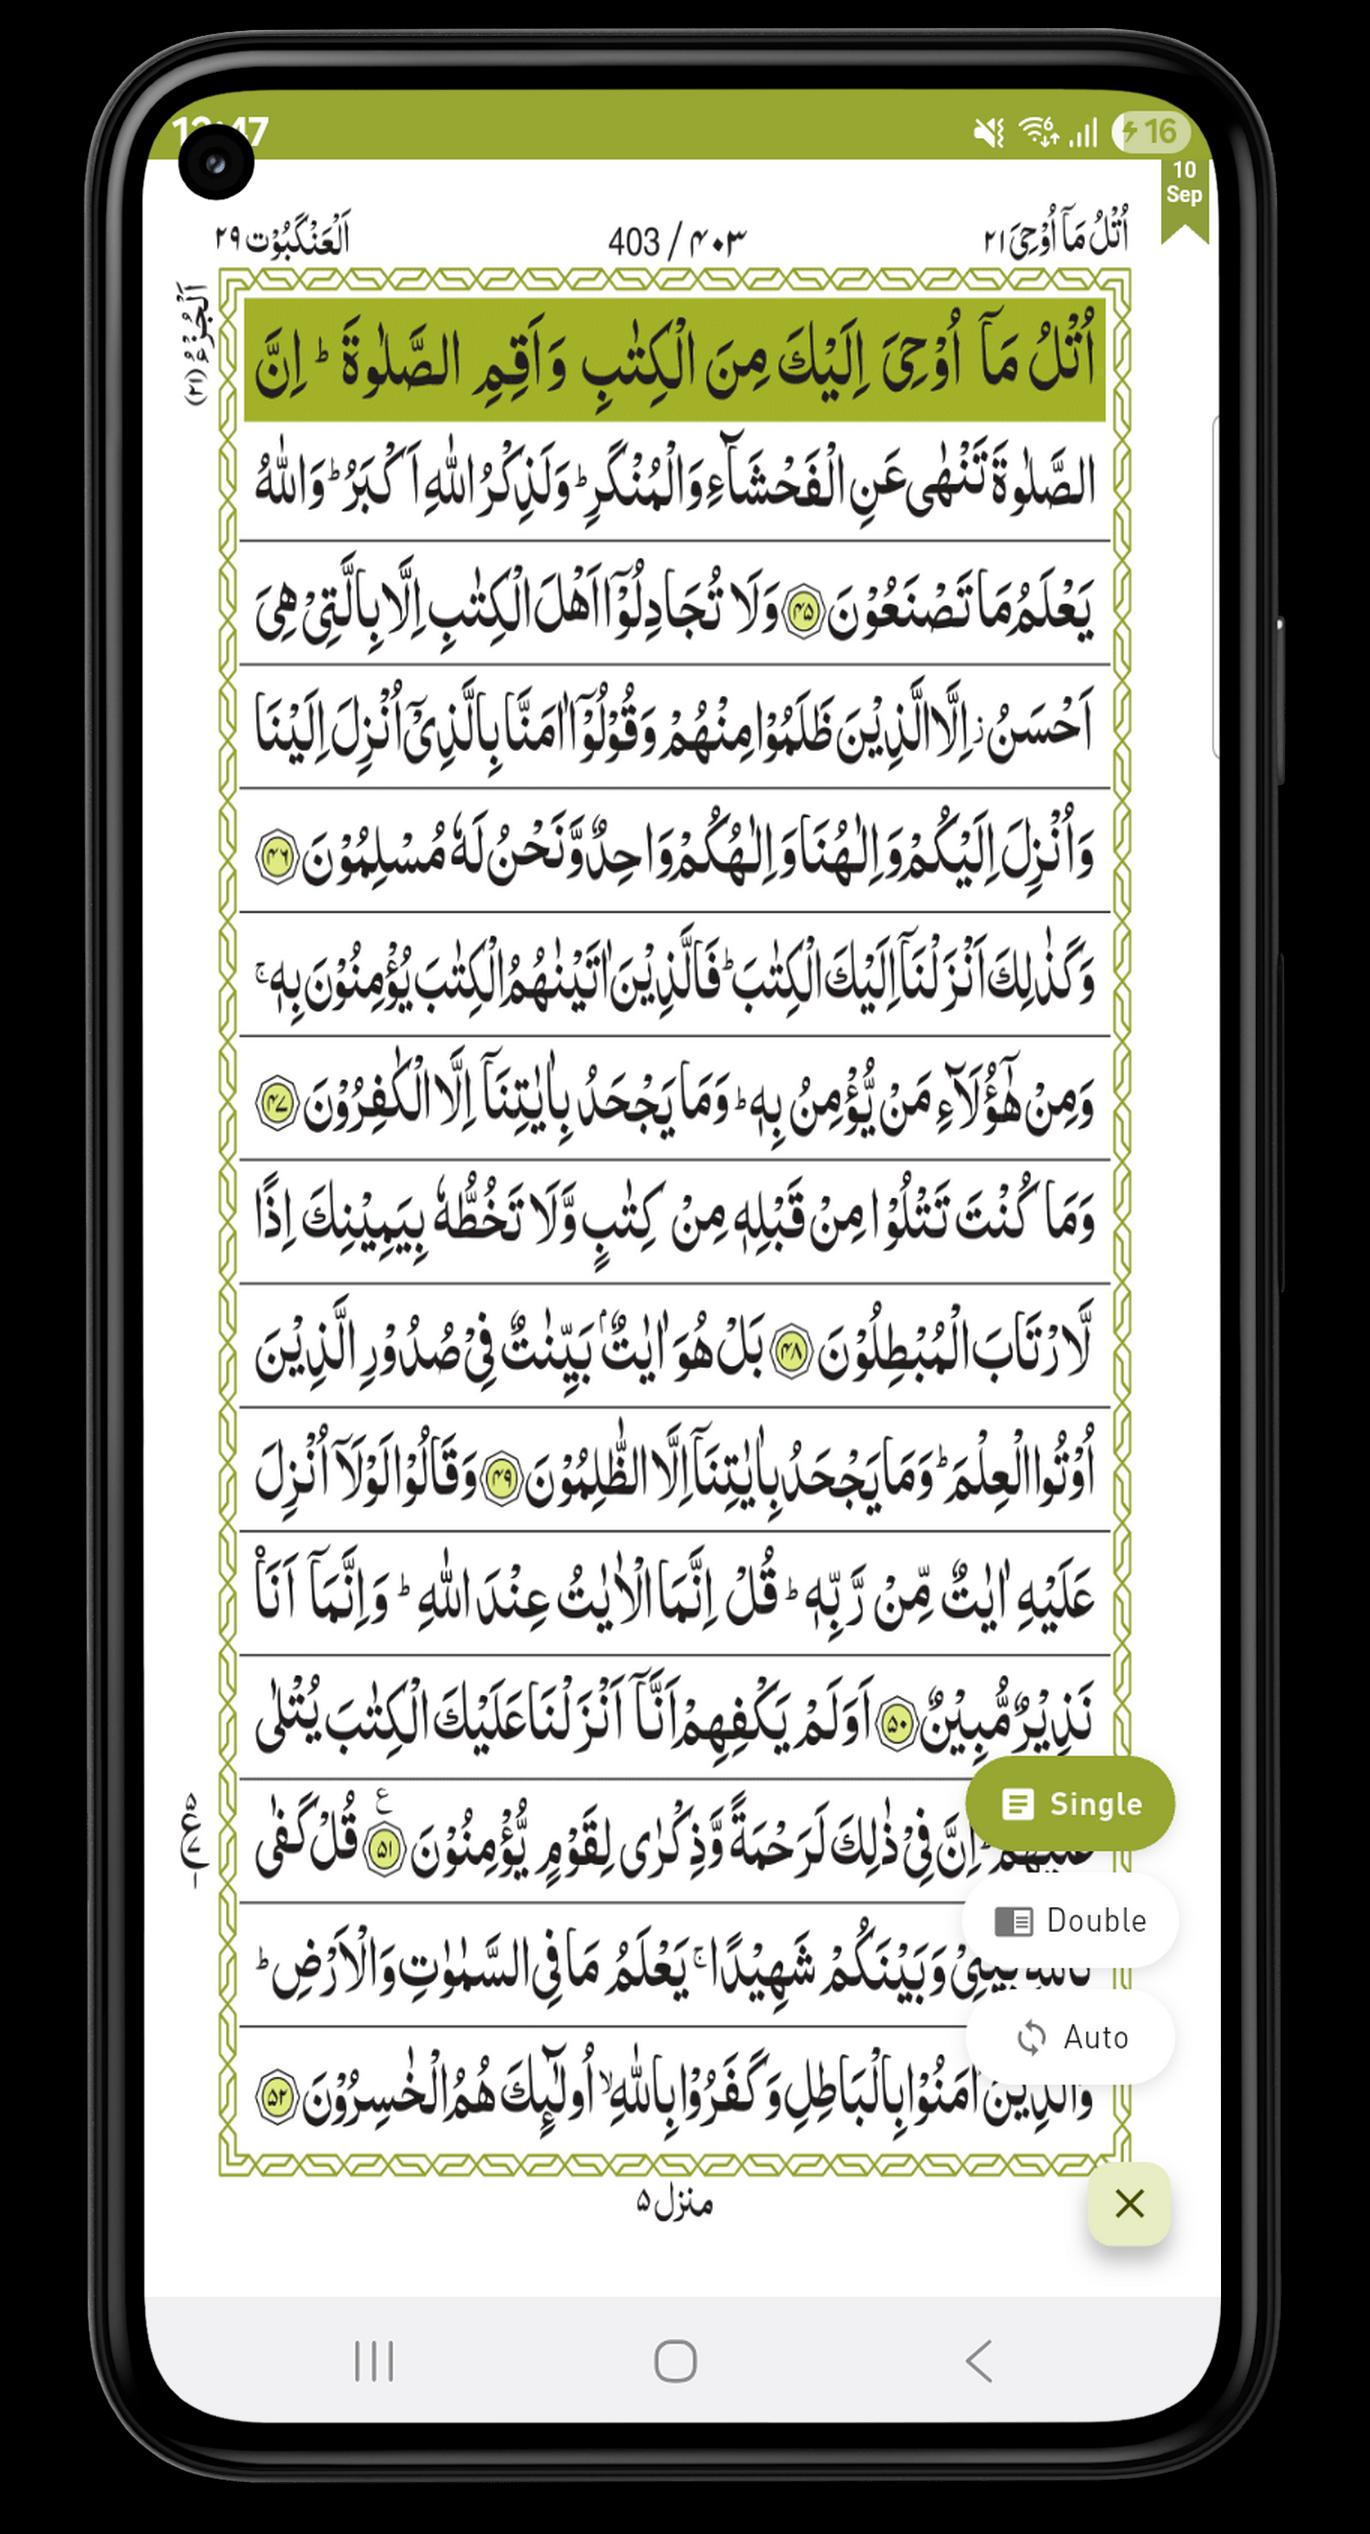 47
16
10
Sep
اُتْلُ مَاۤ اُوْحِیَ ۲۱
403 / ۴۰۳
اَلْعَنْكَبُوْت ۲۹
اَلْجُزْءُ (۲۱)
اُتْلُ مَاۤ اُوْحِیَ اِلَیْكَ مِنَ الْكِتٰبِ وَاَقِمِ الصَّلٰوةَ ؕ اِنَّ
الصَّلٰوةَ تَنْهٰی عَنِ الْفَحْشَآءِ وَالْمُنْكَرِ ؕ وَلَذِكْرُ اللّٰهِ اَكْبَرُ ؕ وَاللّٰهُ
یَعْلَمُ مَا تَصْنَعُوْنَ ۴۵ وَلَا تُجَادِلُوْۤا اَهْلَ الْكِتٰبِ اِلَّا بِالَّتِیْ هِیَ
اَحْسَنُ ز اِلَّا الَّذِیْنَ ظَلَمُوْا مِنْهُمْ وَقُوْلُوْۤا اٰمَنَّا بِالَّذِیْۤ اُنْزِلَ اِلَیْنَا
وَاُنْزِلَ اِلَیْكُمْ وَاِلٰهُنَا وَاِلٰهُكُمْ وَاحِدٌ وَّنَحْنُ لَهٗ مُسْلِمُوْنَ ۴۶
وَكَذٰلِكَ اَنْزَلْنَاۤ اِلَیْكَ الْكِتٰبَ ؕ فَالَّذِیْنَ اٰتَیْنٰهُمُ الْكِتٰبَ یُؤْمِنُوْنَ بِهٖ ۚ
وَمِنْ هٰۤؤُلَآءِ مَنْ یُّؤْمِنُ بِهٖ ؕ وَمَا یَجْحَدُ بِاٰیٰتِنَاۤ اِلَّا الْكٰفِرُوْنَ ۴۷
وَمَا كُنْتَ تَتْلُوْا مِنْ قَبْلِهٖ مِنْ كِتٰبٍ وَّلَا تَخُطُّهٗ بِیَمِیْنِكَ اِذًا
لَّارْتَابَ الْمُبْطِلُوْنَ ۴۸ بَلْ هُوَ اٰیٰتٌۢ بَیِّنٰتٌ فِیْ صُدُوْرِ الَّذِیْنَ
اُوْتُوا الْعِلْمَ ؕ وَمَا یَجْحَدُ بِاٰیٰتِنَاۤ اِلَّا الظّٰلِمُوْنَ ۴۹ وَقَالُوْا لَوْلَاۤ اُنْزِلَ
عَلَیْهِ اٰیٰتٌ مِّنْ رَّبِّهٖ ؕ قُلْ اِنَّمَا الْاٰیٰتُ عِنْدَ اللّٰهِ ؕ وَاِنَّمَاۤ اَنَا۠
نَذِیْرٌ مُّبِیْنٌ ۵۰ اَوَلَمْ یَكْفِهِمْ اَنَّاۤ اَنْزَلْنَا عَلَیْكَ الْكِتٰبَ یُتْلٰی
اِنَّ فِیْ ذٰلِكَ لَرَحْمَةً وَّذِكْرٰی لِقَوْمٍ یُّؤْمِنُوْنَ ۵۱ ع قُلْ كَفٰی
بَیْنِیْ وَبَیْنَكُمْ شَهِیْدًا ۚ یَعْلَمُ مَا فِی السَّمٰوٰتِ وَالْاَرْضِ ؕ
وَالَّذِیْنَ اٰمَنُوْا بِالْبَاطِلِ وَكَفَرُوْا بِاللّٰهِ ۙ اُولٰٓئِكَ هُمُ الْخٰسِرُوْنَ ۵۲
منزل ۵
Single
Double
Auto